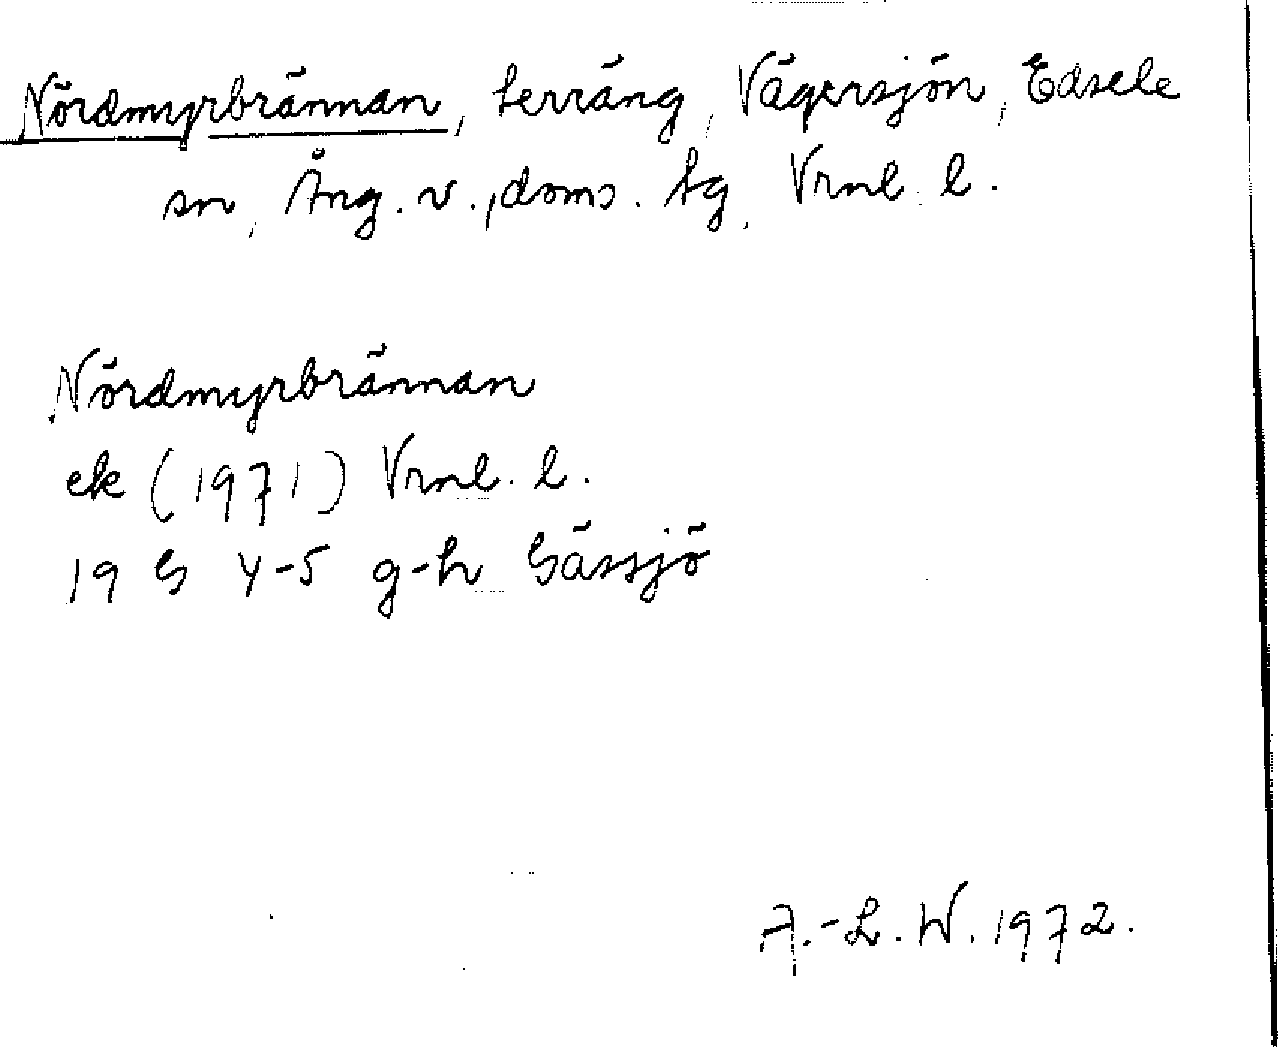 Nördmyrbrännan, terräng, Vägersjön, Edsele
sn, Ång. v., doms. tg, Vrnl. l.
Nördmyrbrännan
ek (1971) Vrnl. l.
19 G 4-5 g-h Gåssjö
A.-L. W. 1972.